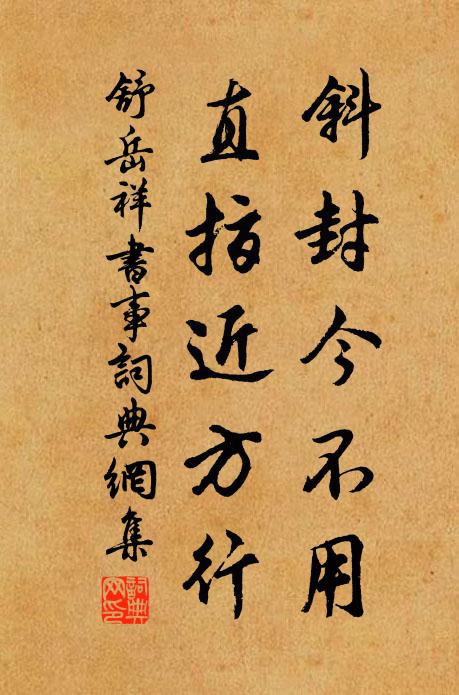 斜封今不用
直指近方行
舒岳祥書事詞典網集
詞典網印